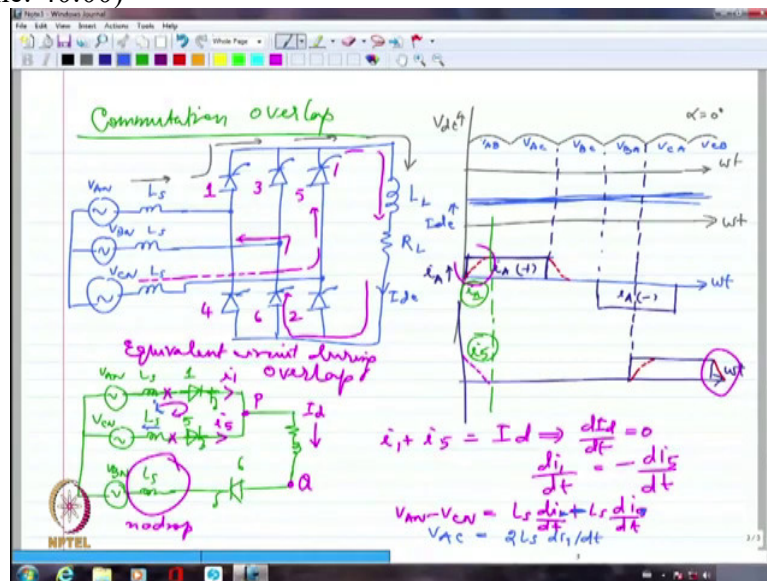 Note1 - Windows Journal
File Edit View Insert Actions Tools Help
Whole Page
Commutation overlap
V_AN L_S
V_BN L_S
V_CN L_S
1 3 5
4 6 2
L_L
R_L
I_dc
V_dc α=0°
V_AB V_AC V_BC V_BA V_CA V_CB
ωt
I_dc ωt
i_A i_A(+) ωt
i_A(-)
i_A
i_5
ωt
Equivalent circuit during
overlap
V_AN L_S 1 i_1
P
I_d
V_CN L_S 5 i_5
V_BN L_S 6 Q
no drop
i_1 + i_5 = I_d ⇒ dI_d/dt = 0
di_1/dt = - di_5/dt
V_AN - V_CN = L_S di_1/dt + L_S di_1/dt
V_AC = 2L_S di_1/dt
NPTEL
3
3/3